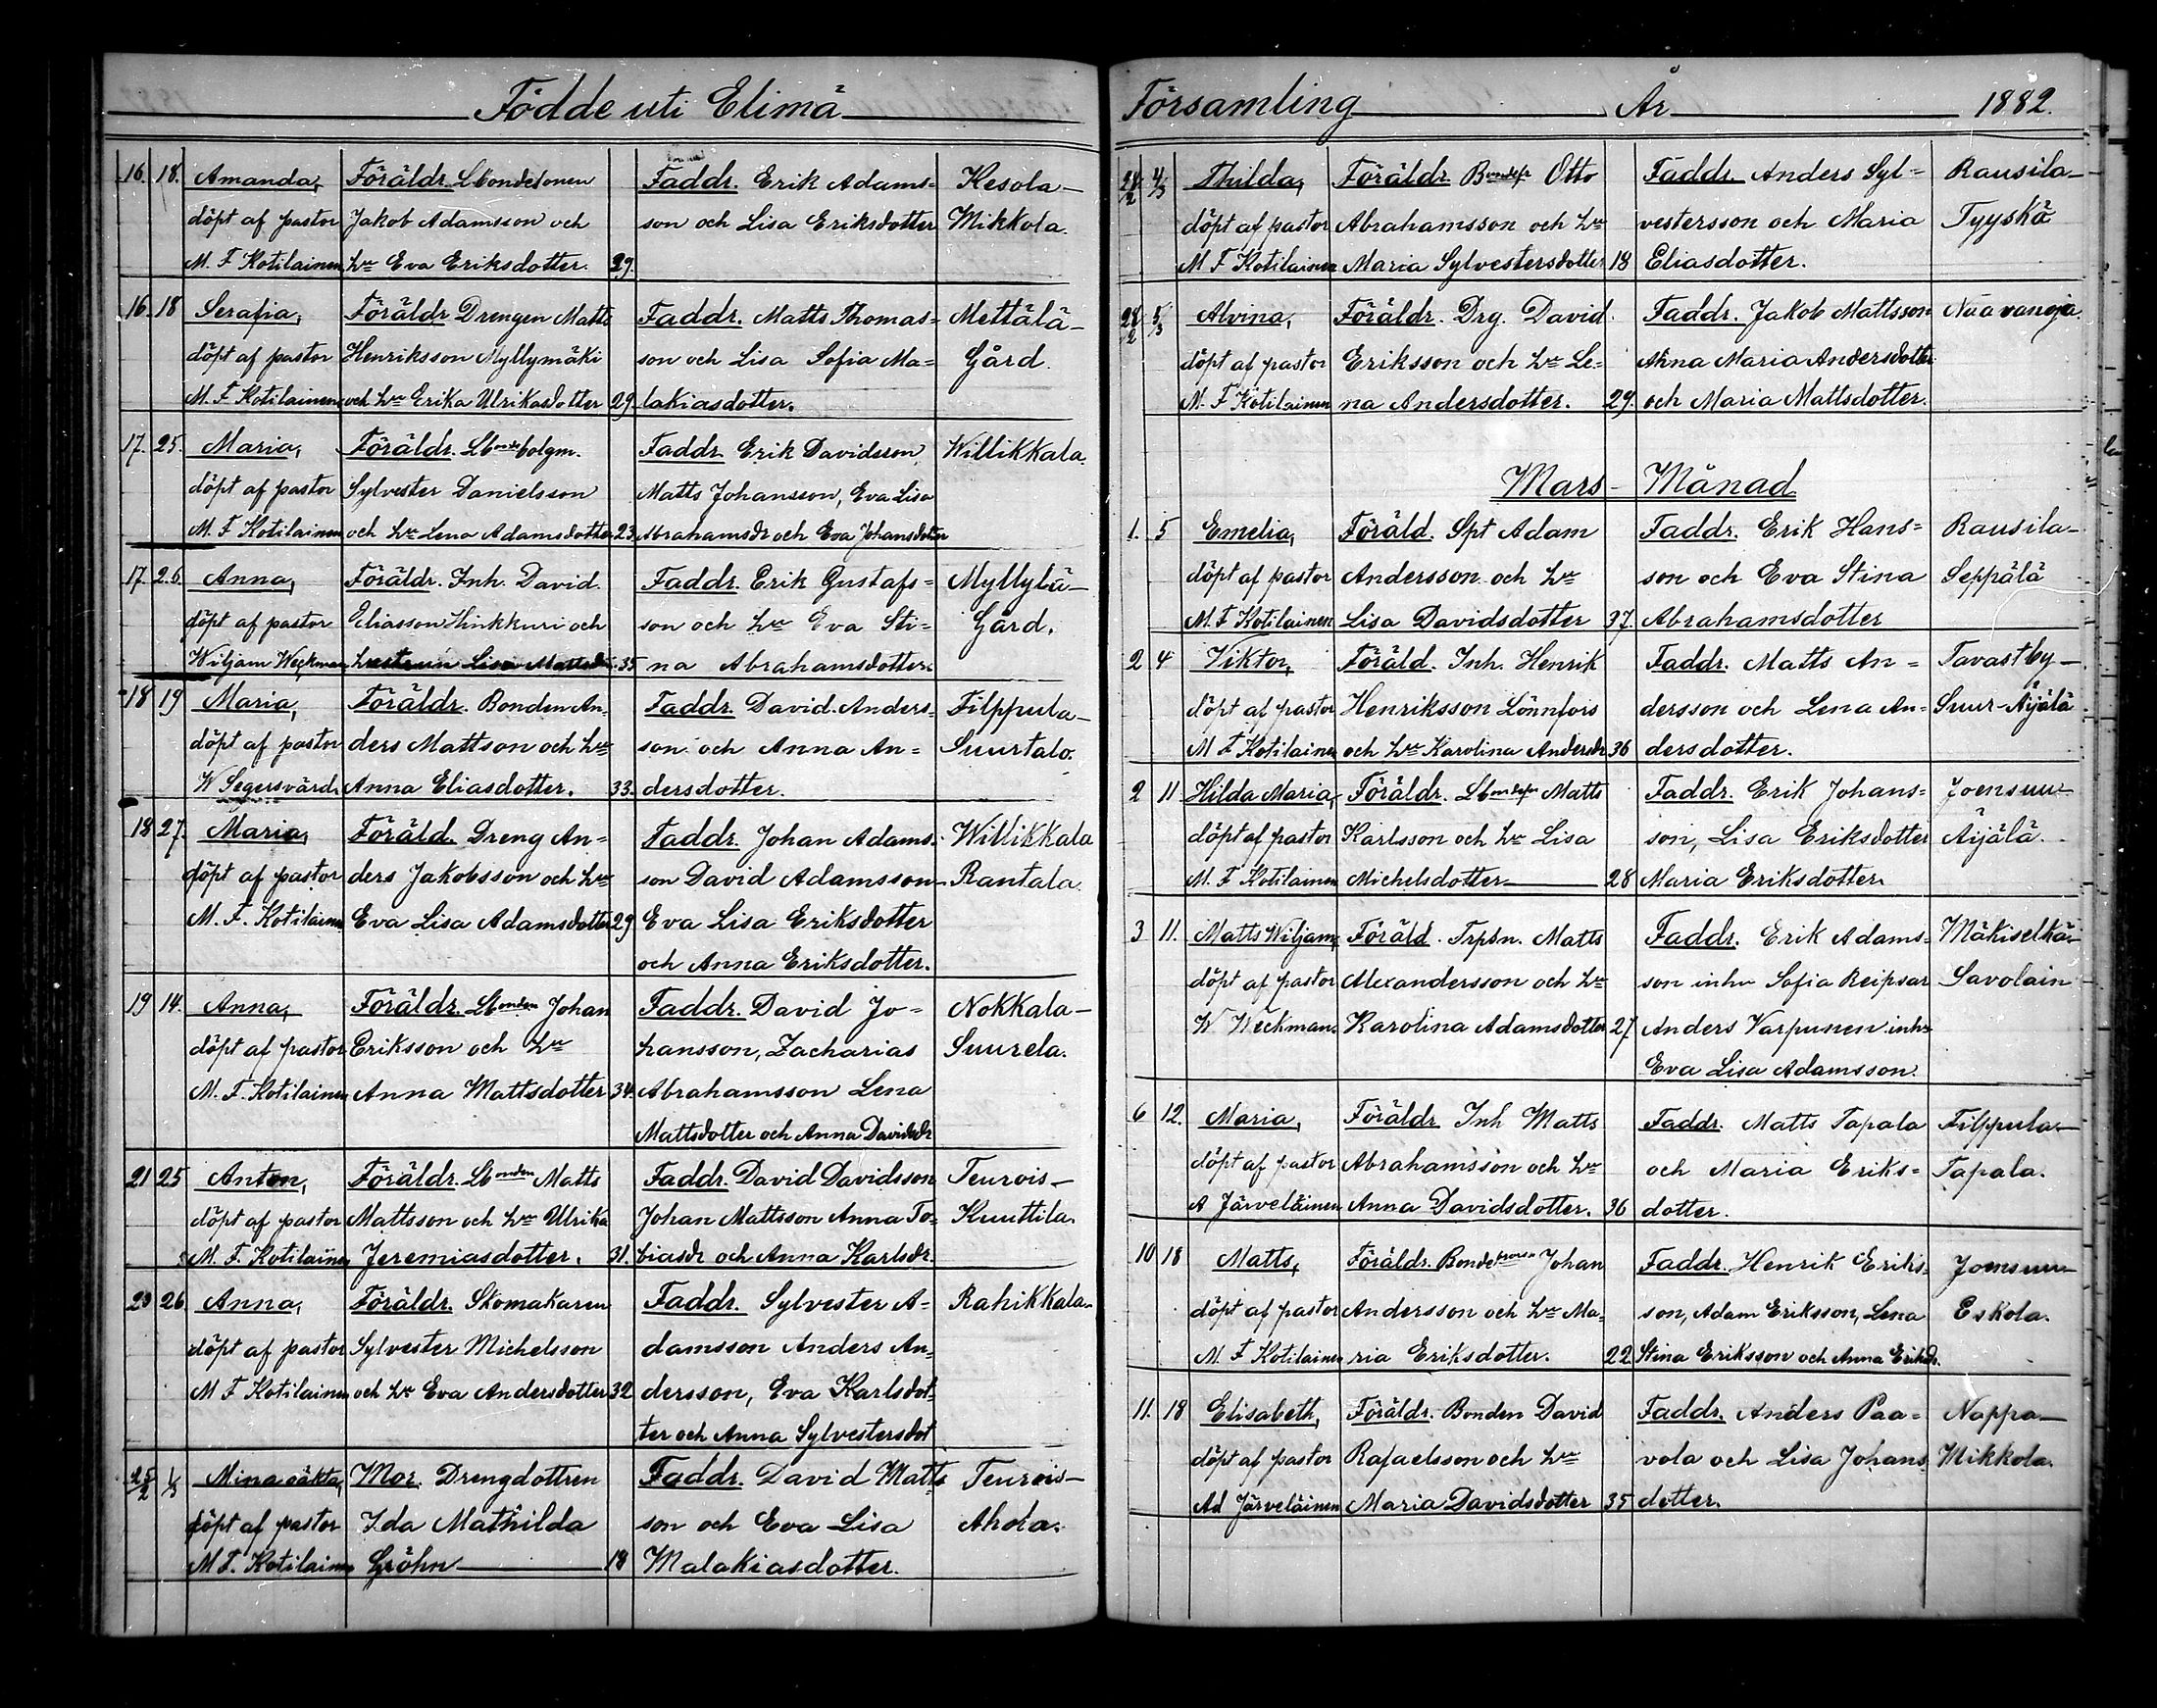 Födde uti Elimä
16. 18. Amanda, Föräldr. Lbondesonen Faddr. Erik Adams= Kesola-
döpt af pastor Jakob Adamsson och son och Lisa Eriksdotter Mikkola.
M. F Kotilainen hu Eva Eriksdotter. 29.
16. 18 Serafia, Föräldr Drengen Matts Faddr. Matts Thomas= Mettälä-
döpt af pastor Henriksson Myllymäki son och Lisa Sofia Ma= Gård.
M. F. Kotilainen och hu Erika Ulrikasdotter 29. lakiasdotter.
17. 25. Maria, Föräldr. Lbonde bolgm. Faddr. Erik Davidsson, Willikkala.
döpt af pastor Sylvester Danielsson Matts Johansson, Eva Lisa
M. F Kotilainen och hu Lena Adamsdotter 23. Abrahamsdr och Eva Johansdotter
17. 26. Anna, Föräldr. Inh. David. Faddr. Erik Gustafs= Myllylä-
döpt af pastor Eliasson Hinkkuri och son och hu Eva Sti= Gård.
Wiljam Weckman hustrun Lisa Mattsdr. 35 na Abrahamsdotter.
18 19 Maria, Föräldr. Bonden An= Faddr. David Anders= Filppula-
döpt af pastor ders Mattson och hu son och Anna An= Suurtalo.
W Segersvärd. Anna Eliasdotter. 33. dersdotter.
18 27. Maria, Föräld. Dreng An= Faddr. Johan Adams= Willikkala
döpt af pastor ders Jakobsson och hu son David Adamsson Rantala.
M. F. Kotilainen Eva Lisa Adamsdotter 29 Eva Lisa Eriksdotter
och Anna Eriksdotter.
19 14. Anna, Föräldr. Lbonden Johan Faddr. David Jo= Nokkala-
döpt af pastor Eriksson och hu hansson, Zacharias Suurela.
M. F. Kotilainen Anna Mattsdotter 34. Abrahamsson Lena
Mattsdotter och Anna Davidsdr
21 25 Anton, Föräldr. Lbonden Matts Faddr. David Davidsson Teurois-
döpt af pastor Mattsson och hu Ulrika Johan Mattsson Anna To= Kuuttila.
M. F. Kotilainen Jeremiasdotter. 31. biasdr och Anna Karlsdr.
23 26 Anna, Föräldr. Skomakaren Faddr. Sylvester A= Rahikkala-
döpt af pastor Sylvester Michelsson damsson Anders An=
M F Kotilainen och hu Eva Andersdotter 32 dersson, Eva Karlsdot=
ter och Anna Sylvestersdot
25/2 1/3 Mina oäkta, Mor. Drengdottren Faddr. David Matts Teurois-
döpt af pastor Ida Mathilda son och Eva Lisa Ahola.
M F. Kotilainen Gröhn 18 Malakiasdotter.
Församling År 1882.
24/2 4/3 Thilda, Föräldr Otto Faddr. Anders Syl= Rausila-
döpt af pastor Abrahamsson och hu vestersson och Maria Tyyskä
M F Kotilainen Maria Sylvestersdotter 18 Eliasdotter.
28/2 5/3 Alvina, Föräldr. Drg. David Faddr. Jakob Mattsson Naavanoja.
döpt af pastor Eriksson och hu Le= Anna Maria Andersdotter
M. F Kotilainen na Andersdotter. 29. och Maria Mattsdotter.
Mars- Månad
1. 5 Emelia, Föräld. Spt Adam Faddr. Erik Hans= Rausila-
döpt af pastor Andersson och hu son och Eva Stina Seppälä
M. F Kotilainen Lisa Davidsdotter 37. Abrahamsdotter
2 4 Viktor, Föräld. Inh. Henrik Faddr. Matts An= Tavastby-
döpt af pastor Henriksson Lönnfors dersson och Lena An= Suur-Äijälä
M F Kotilainen och hu Karolina Andersdr 36 dersdotter.
2 11 Hilda Maria, Föräldr. Matts Faddr. Erik Johans= Joensuu-
döpt af pastor Karlsson och hu Lisa son, Lisa Eriksdotter Äijälä.
M. F Kotilainen Michelsdotter 28 Maria Eriksdotter.
3 11. Matts Wiljam, Föräld. Trpsn. Matts Faddr. Erik Adams= Mäkiselkä-
döpt af pastor Alexandersson och hu son inhn Sofia Reipsar Savolain
W Weckman. Karolina Adamsdotter 27. Anders Varpunen inhs
Eva Lisa Adamsson.
6 12. Maria, Föräldr Inh Matts Faddr. Matts Tapala Filppula-
döpt af pastor Abrahamsson och hu och Maria Eriks= Tapala.
A Järveläinen Anna Davidsdotter. 36 dotter.
10 18 Matts, Föräldr. Bondesonen Johan Faddr. Henrik Eriks= Joensuu-
döpt af pastor Andersson och hu Ma= son, Adam Eriksson, Lena Eskola.
M. F Kotilainen ria Eriksdotter. 22 Stina Eriksson och Anna Eriksdr.
11. 18 Elisabeth, Föräldr. Bonden David Faddr. Anders Paa= Nappa-
döpt af pastor Rafaelsson och hu vola och Lisa Johans Mikkola.
Ad Järveläinen Maria Davidsdotter 35 dotter.